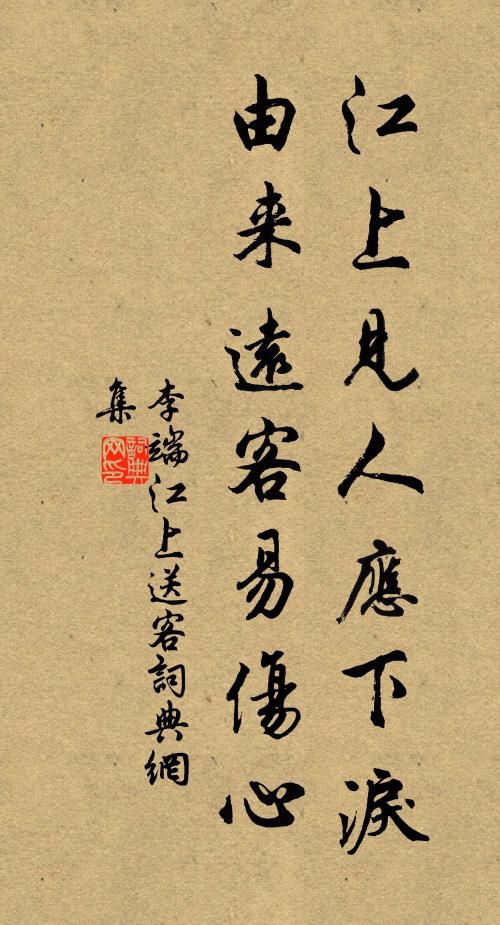 江上見人應下淚
由来遠客易傷心
李端江上送客詞典網
集
詞典
网印